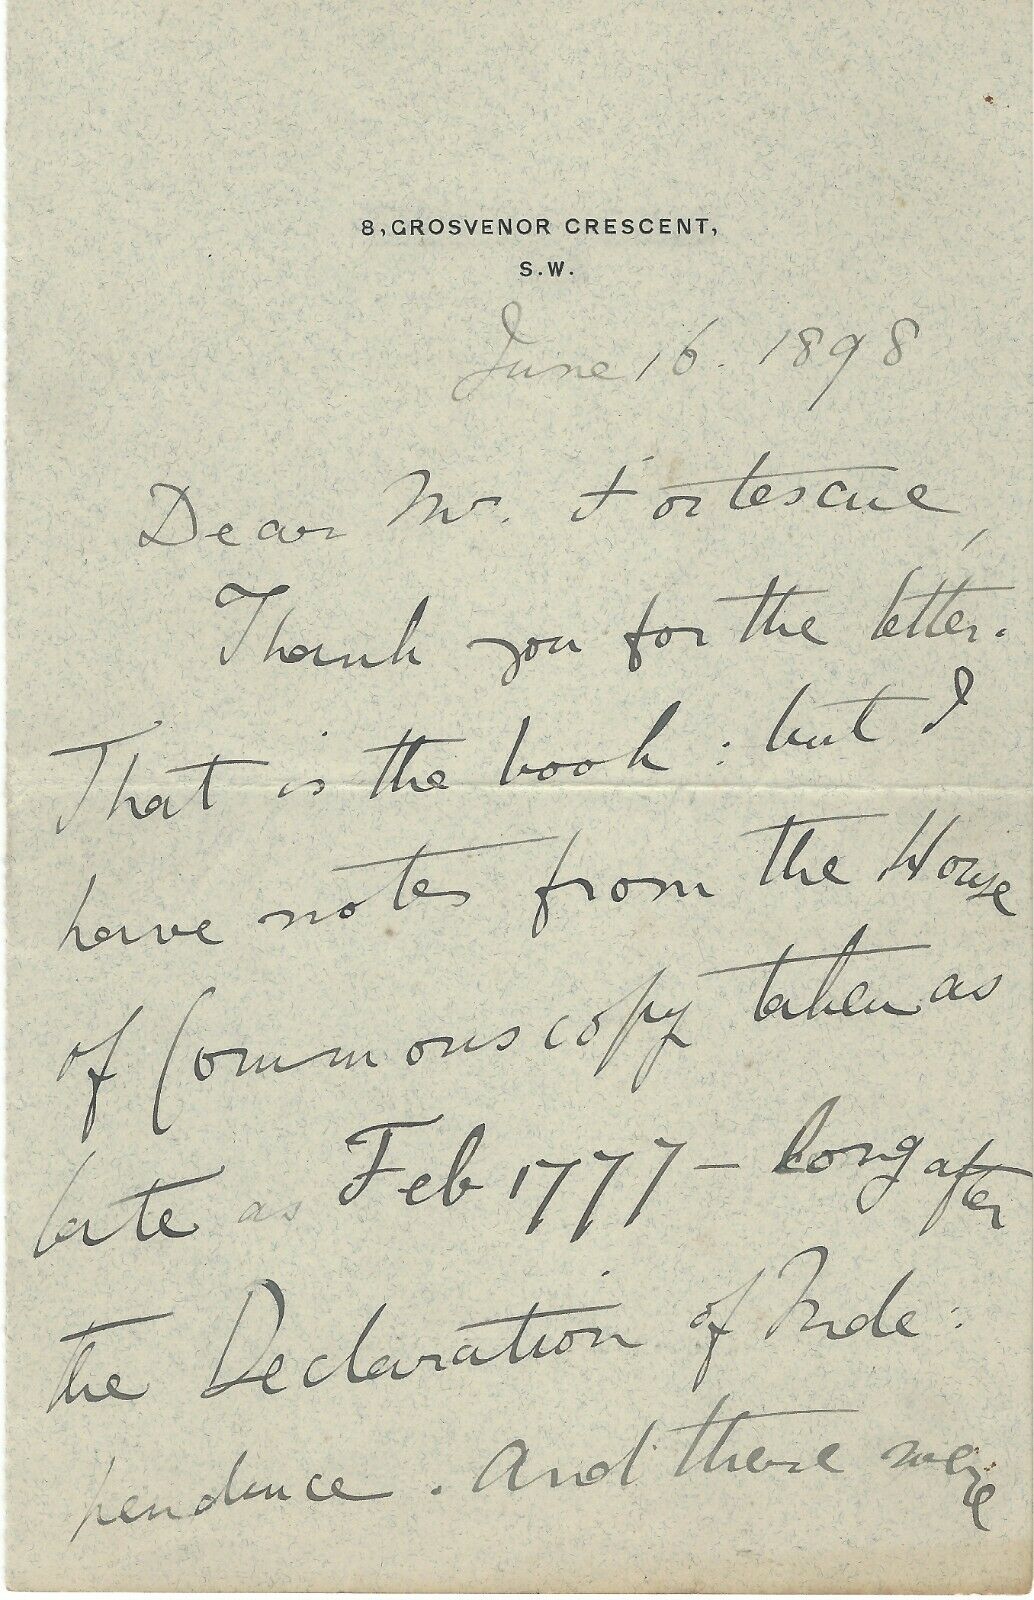 8, GROSVENOR CRESCENT,
S.W.
June 16. 1898
Dear Mr. Fortescue,
Thank you for the letter.
That is the book : but I
have notes from the House
of Commons copy taken as
late as Feb 1777 – long after
the Declaration of Inde:
pendence. And there were